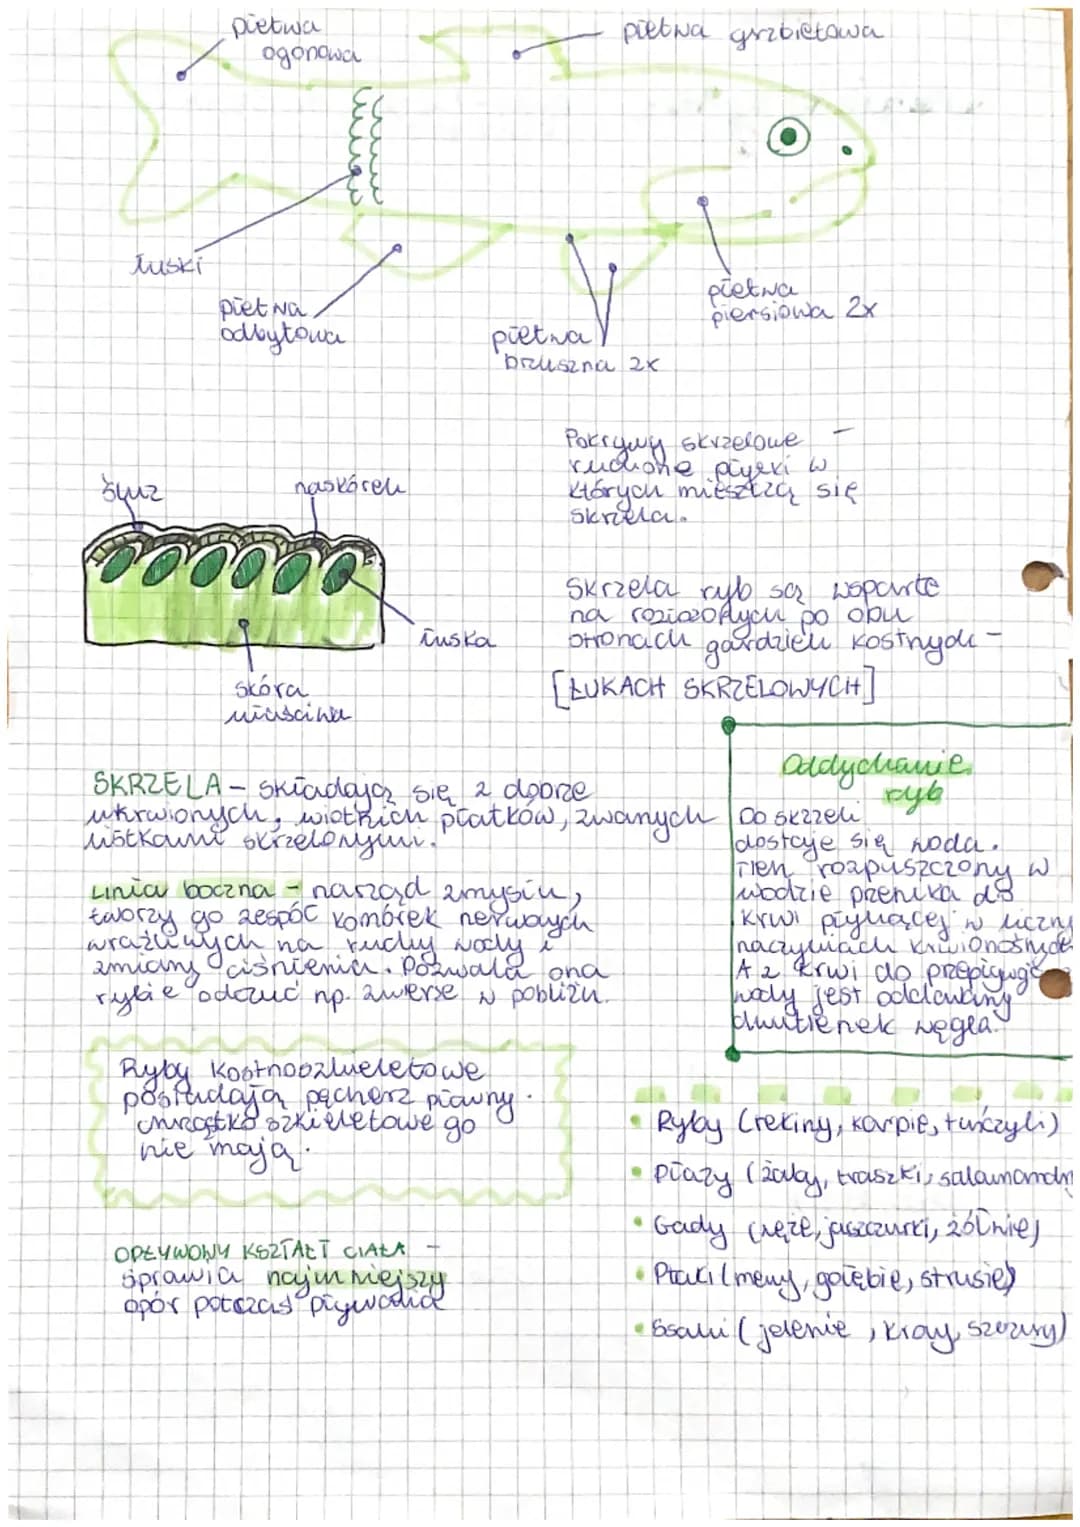 płetwa
ogonowa
płetwa grzbietowa
łuski
płetwa
odbytowa
płetwa
brzuszna 2x
płetwa
piersiowa 2x
Pokrywy skrzelowe -
ruchome płytki w
których mieszczą się
skrzela.
śluz
naskórek
łuska
skóra
właściwa
Skrzela ryb są wsparte
na rozłożonych po obu
stronach gardzieli kostnych -
[ŁUKACH SKRZELOWYCH]
SKRZELA - składają się z dobrze
ukrwionych, wiotkich płatków, zwanych
listkami skrzelowymi.
Linia boczna - narząd zmysłu,
tworzy go zespół komórek nerwowych
wrażliwych na ruchy wody i
zmiany ciśnienia. Pozwala ona
rybie odczuć np. zwierzę w pobliżu.
Oddychanie
ryb
Do skrzeli
dostaje się woda.
Tlen rozpuszczony w
wodzie przenika do
krwi płynącej w liczny
naczyniach krwionośnych
A z krwi do przepływając
wody jest oddawany
dwutlenek węgla.
Ryby kostnoszkieletowe
posiadają pęcherz pławny.
chrząstko szkieletowe go
nie mają.
OPŁYWOWY KSZTAŁT CIAŁA -
sprawia najmniejszy
opór potczas pływania
• Ryby (rekiny, karpie, tuńczyki)
• Płazy (żaby, traszki, salamandry
• Gady (węże, jaszczurki, żółwie)
• Ptaki (mewy, gołębie, strusie)
• Ssaki (jelenie, krowy, szczury)